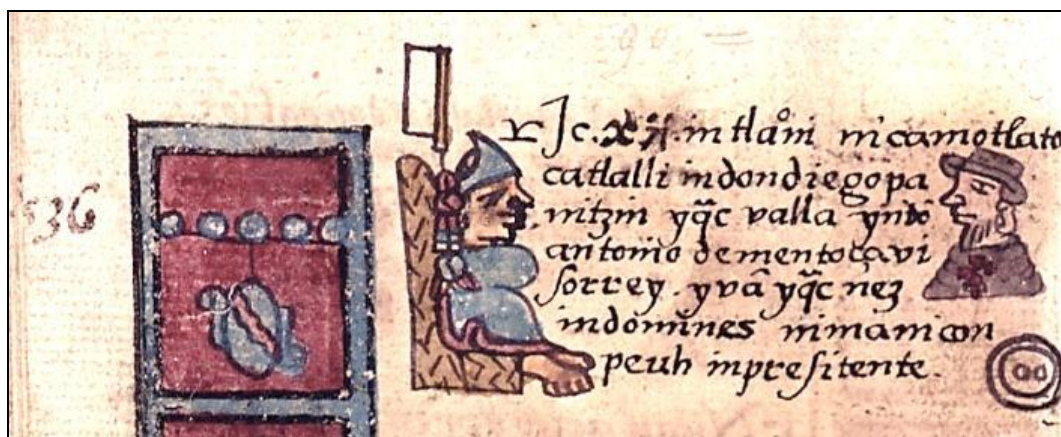 536
Jc. xij. in tlaōni nicamotlato
catlalli indondiegopa
nitzin yq̃c valla yntō
antonio dementoçavi
sorrey. yvā yq̃c nez
indomines nimanicon
peuh inpresitente.